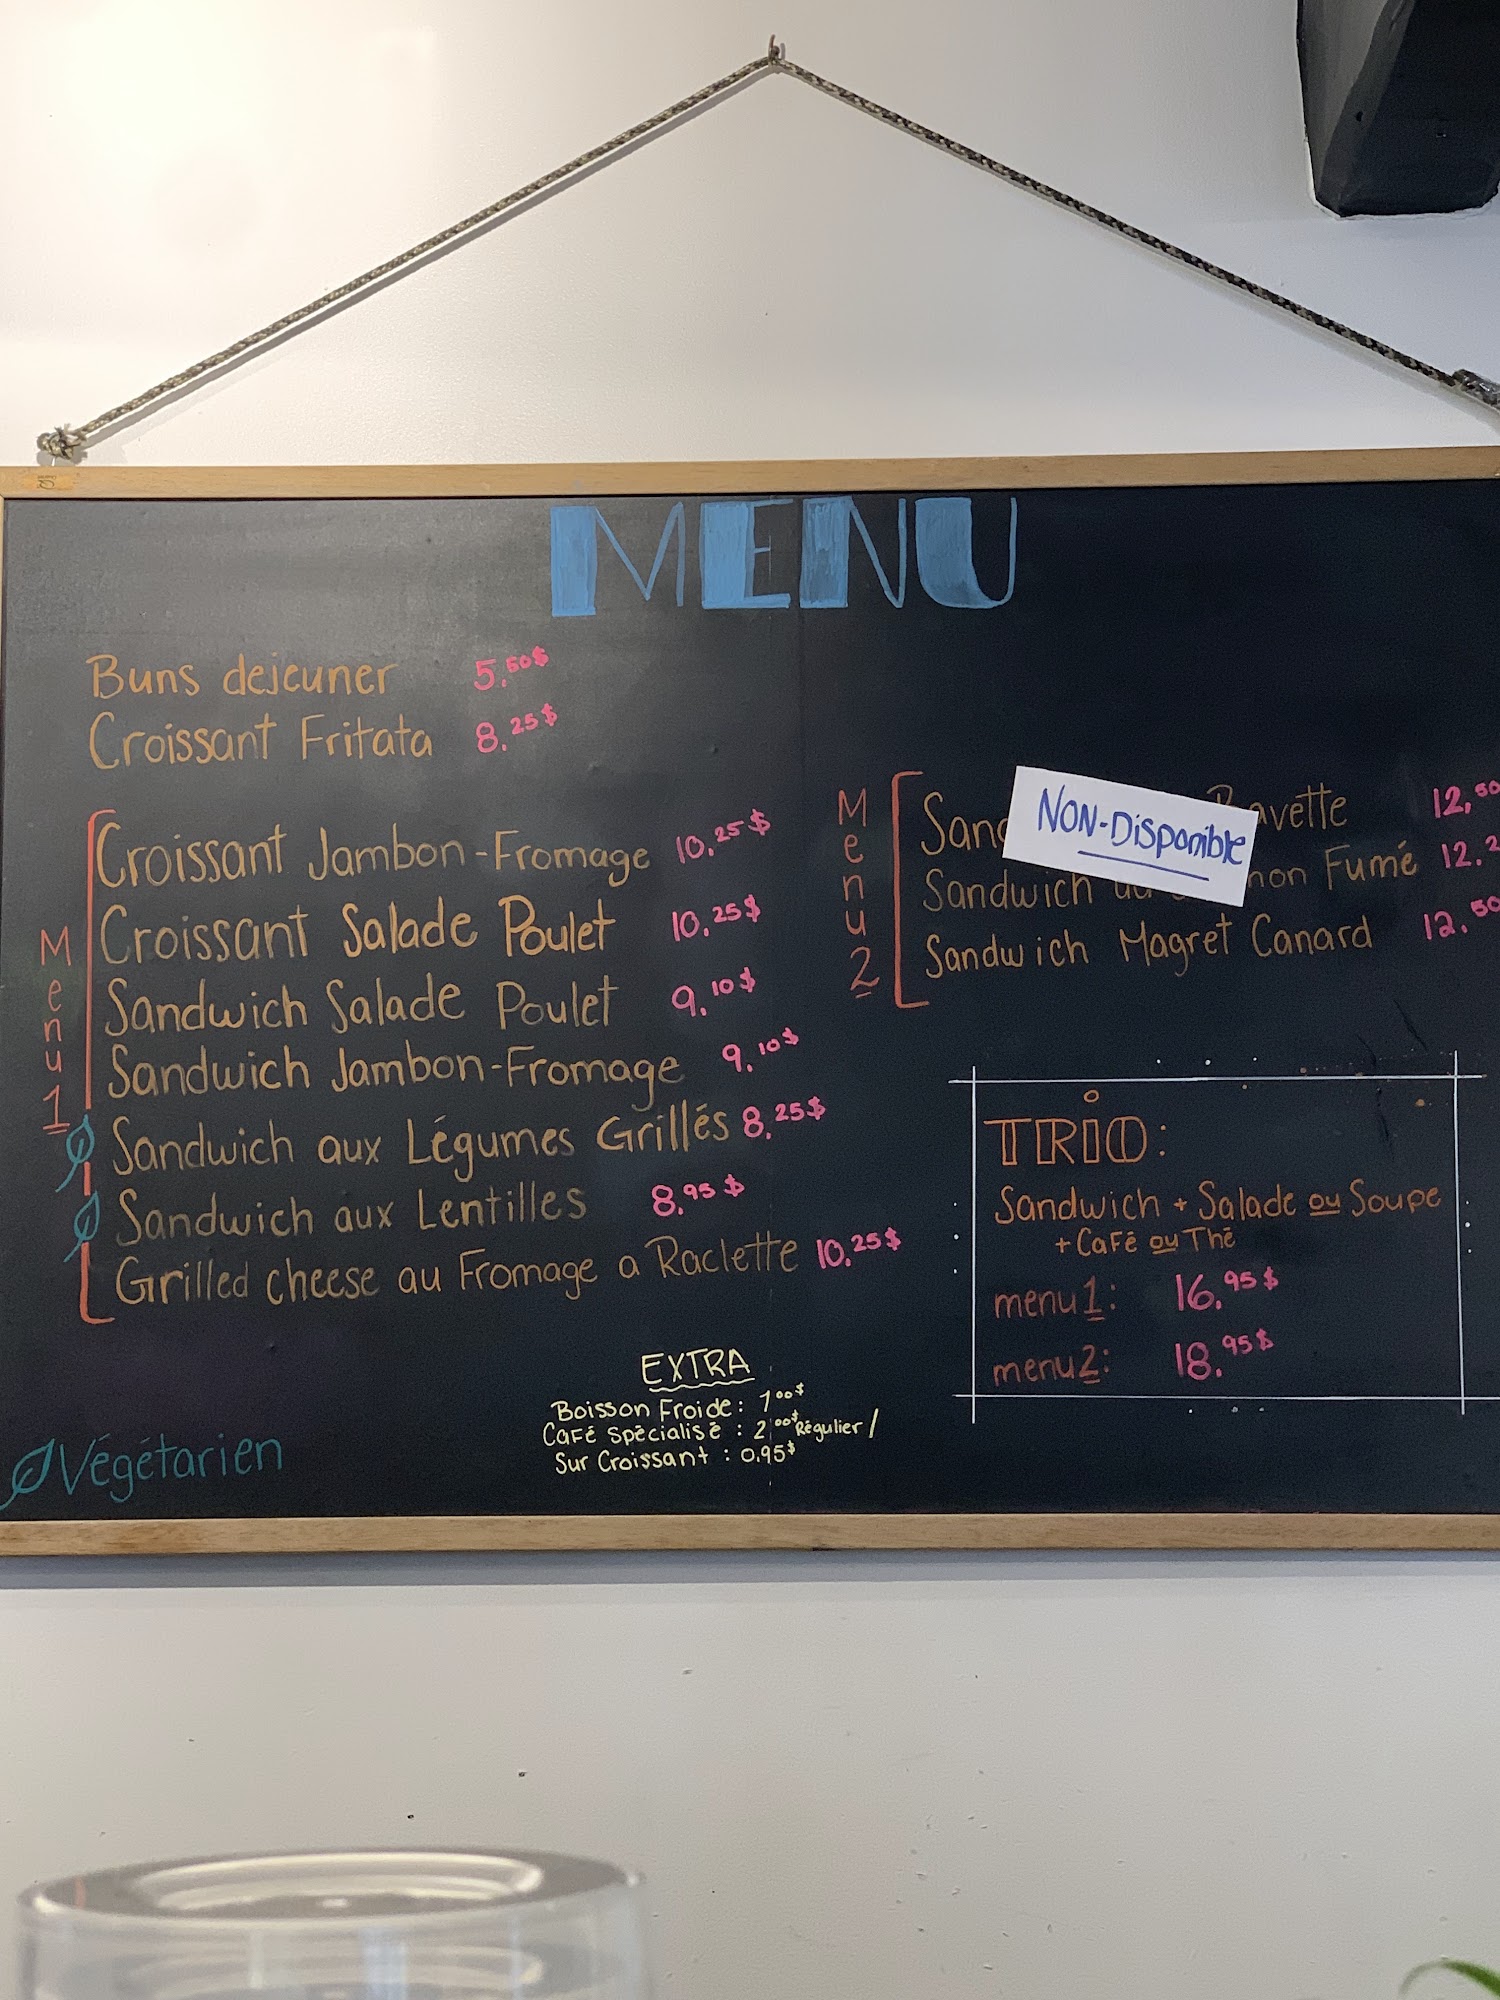 MENU
Buns dejeuner 5.50$
Croissant Fritata 8.25$
Menu 1
Croissant Jambon-Fromage 10.25$
Croissant Salade Poulet 10.25$
Sandwich Salade Poulet 9.10$
Sandwich Jambon-Fromage 9.10$
Sandwich aux Légumes Grillés 8.25$
Sandwich aux Lentilles 8.95$
Grilled cheese au Fromage a Raclette 10.25$
Végétarien
EXTRA
Boisson Froide: 1.00$
Café spécialisé : 2.00$ Régulier/
Sur Croissant : 0.95$
Menu 2
NON-Disponible
Bavette 12,50
Sandwich Fumé 12.2
Sandwich Magret Canard 12.50
TRIO:
Sandwich + Salade ou Soupe
+ Café ou Thé
menu 1: 16.95$
menu 2: 18.95$